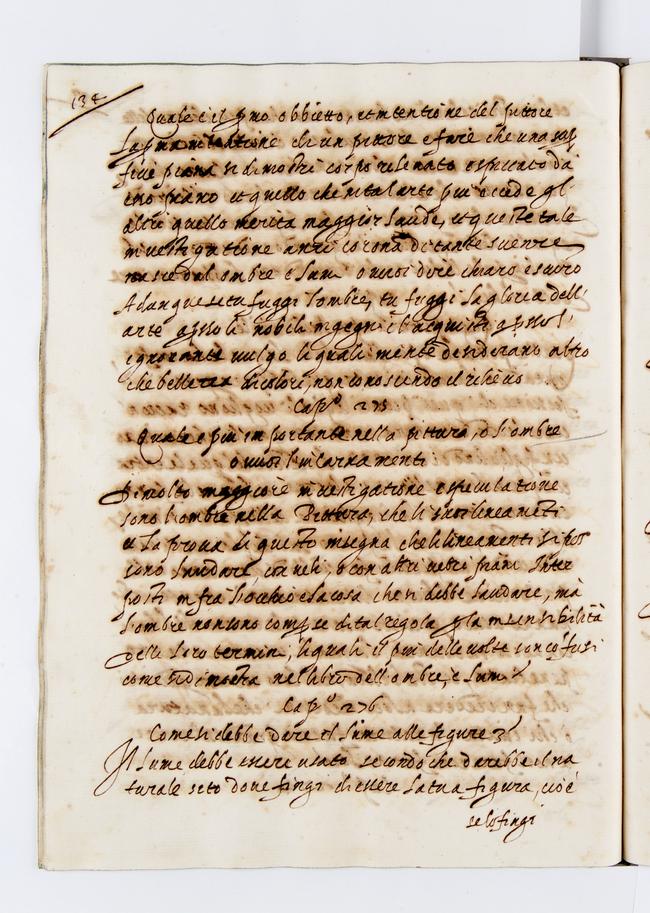 134
Quale è il p.mo obbietto, et intentione del pittore
La p.ma intentione di un pittore è fare che una sup
fitie piana si dimostri corpo relevato e spiccato da
esso piano et quello che in tal arte piu eccede gl'
altri quello merita maggior laude, et queste tale
investigatione anzi corona di tante scienze
nasce dal ombre e lumi o vuoi dire chiaro e scuro
Adunque se tu fuggi l'ombre, tu fuggi la gloria dell'
arte apresso li nobili ingegni e l'acquisti apresso l'
ignorante vulgo li quali niente desiderano altro
che bellezza di colori, non conoscendo il rilievo
Cap.º 275
Quale è piu importante nella pittura, o l'ombre
o vuoi lineamenti
Di molto maggiore investigatione e speculatione
sono l'ombre nella Pittura, che li suoi lineameti
et la prova di questo insegna che li lineamenti si pos
sono lucidare, con veli, o con altri vetri piani Inter
posti infra l'occhio e la cosa che si debbe laudare, mà
l'ombre non sono comp.se di tal regola p la insensibilità
delli loro termini, li quali il piu delle volte son cõfusi
come si dimostra nel libro dell'ombre, e lumi
Cap.º 276
Come si debbe dare il lume alle figure
Il lume debbe essere usato secondo che darebbe il na
turale sito dove fingi di essere la tua figura, cioè
se lo fingi